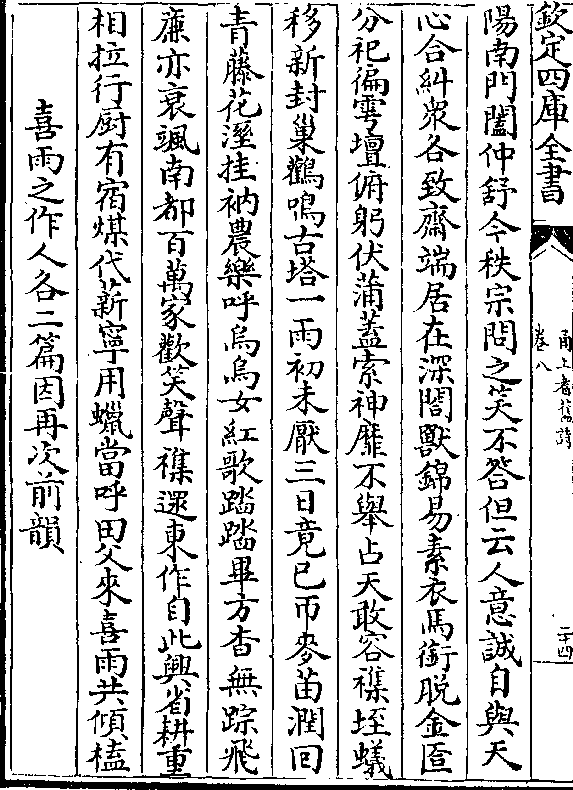 欽定四庫全書
甬上耆舊詩
卷八
二十四
陽南門闔仲舒今秩宗問之笑不答但云人意誠自與天
心合糾衆各致齋端居在深閤獸錦易素衣馬銜脫金匼
分祀徧雩壇俯躬伏蒲蓋索神靡不舉占天敢容襍垤蟻
移新封巢鸛鳴古塔一雨初未厭三日竟已帀麥苗潤回
青藤花溼挂衲農樂呼烏烏女紅歌踏踏畢方杳無踪飛
亷亦衰颯南都百萬家歡笑聲襍遝東作自此興省耕重
相拉行厨有宿煤代薪寧用蠟當呼田父來喜雨共傾榼
喜雨之作人各二篇因再次前韻